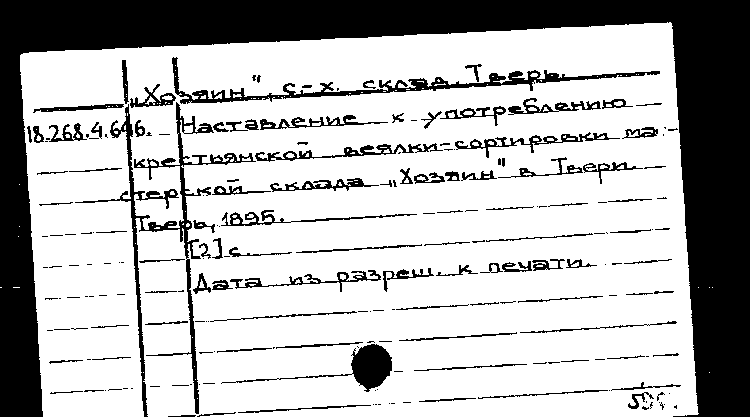 „Хозяин", с.-х. склад. Тверь.
18.268.4.646. Наставление к употреблению
крестьянской веялки-сортировки ма-
стерской склада „Хозяин" в Твери.
Тверь, 1895.
[2] с.
Дата из разреш. к печати.